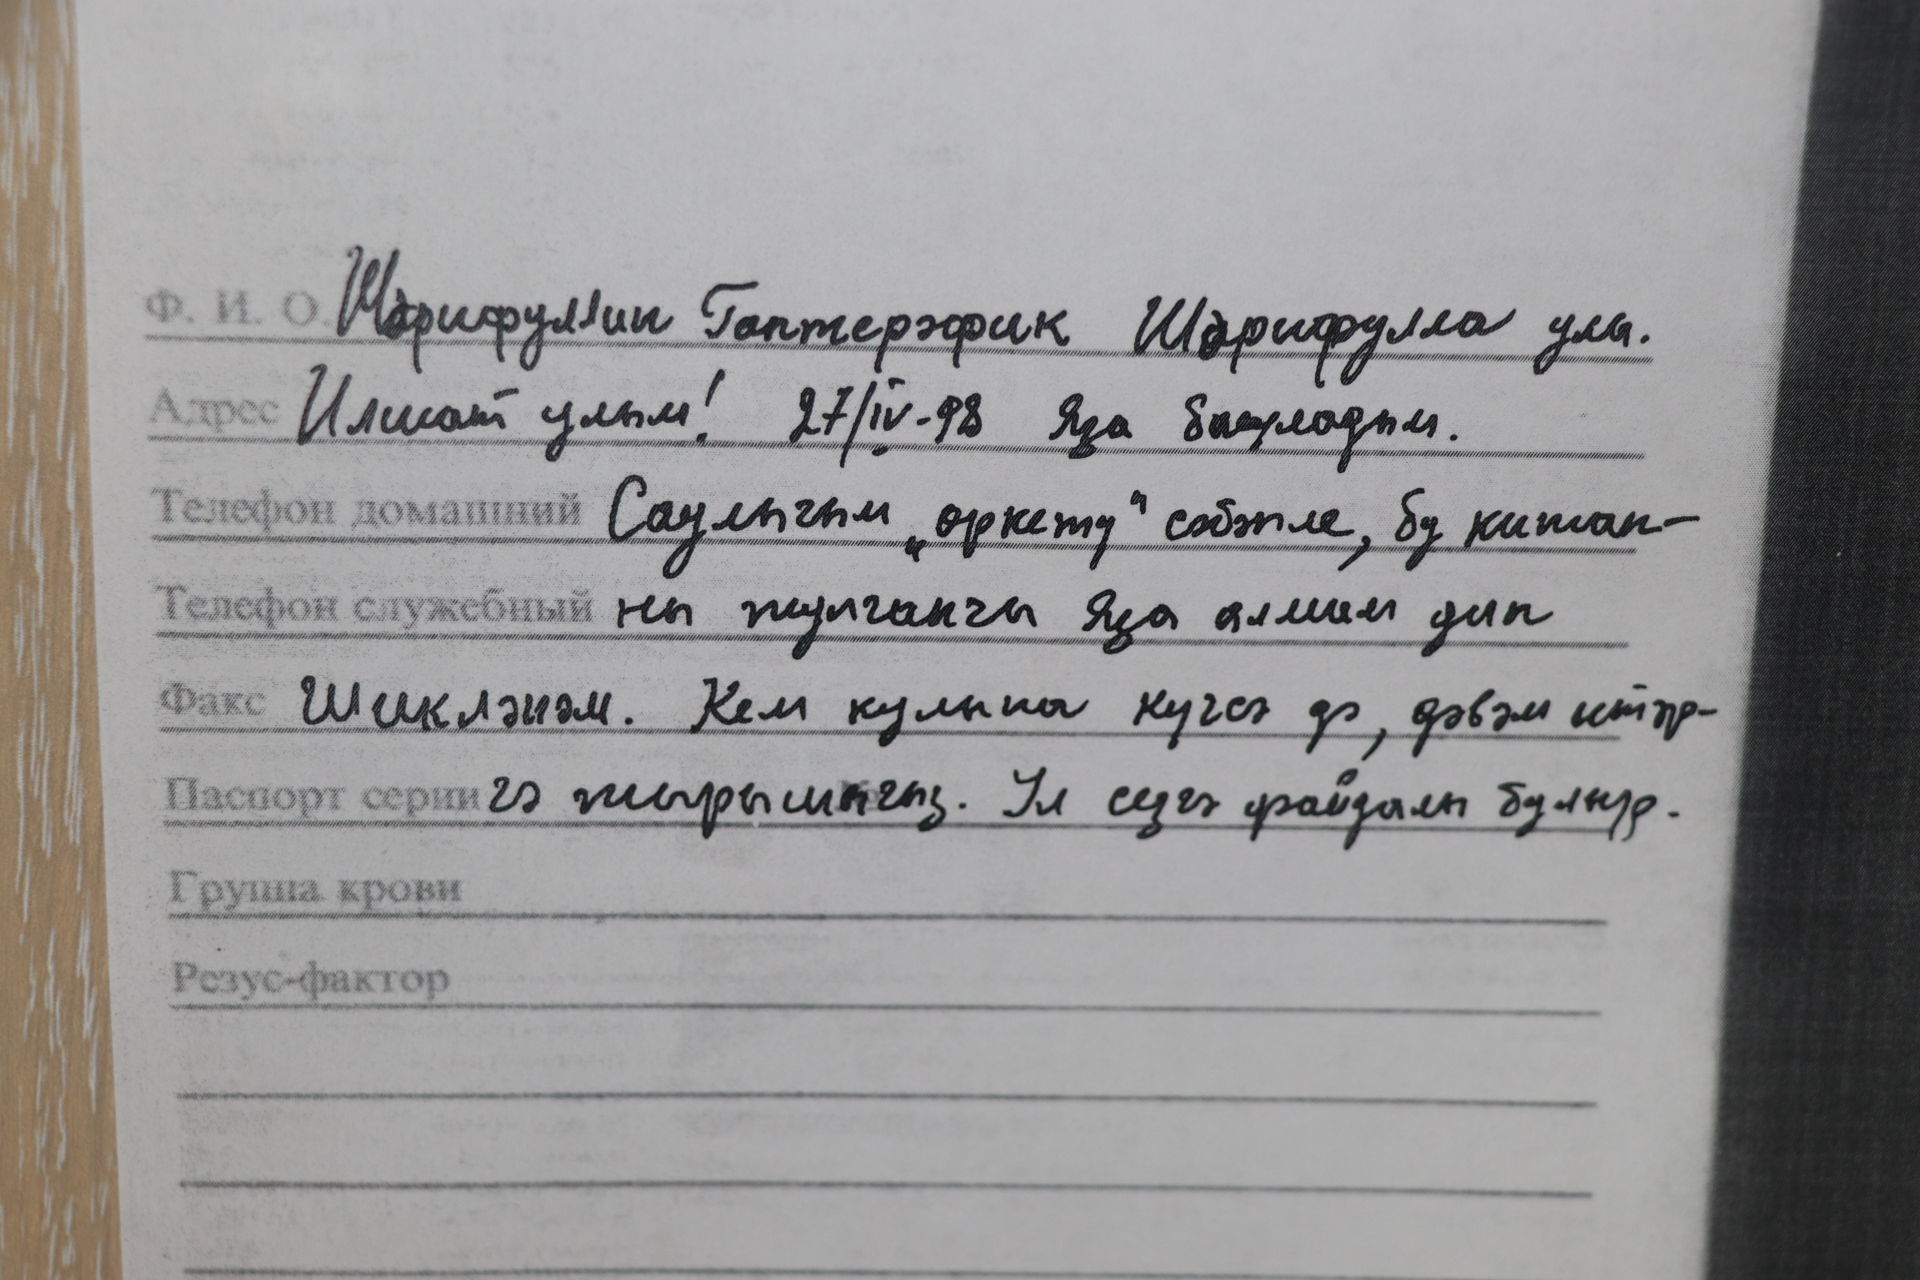 Ф. И. О. Шәрифуллин Гаптерәфик Шәрифулла улы.
Адрес Илшат улым! 27/IV-98 Яза башладым.
Телефон домашний Саулыгым „өркетү“ сәбәпле, бу китап-
Телефон служебный ны тулганчы яза алмам дип
Факс Шикләнәм. Кем кулына күчсә дә, дәвам итәр-
Паспорт серии гә тырышыгыз. Ул сезгә файдалы булыр.
Группа крови
Резус-фактор